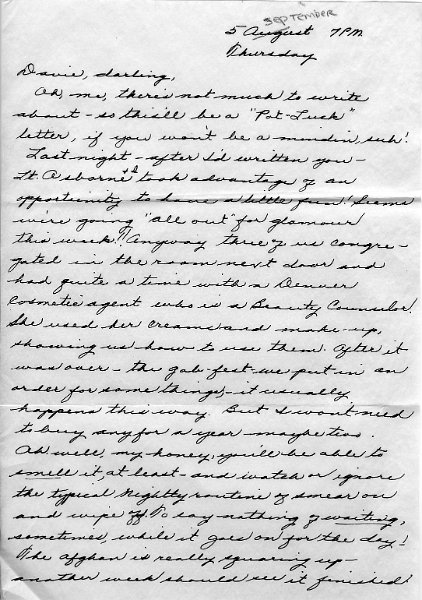 September
5 August 7PM
Thursday
Davie, darling,
Oh, me, there's not much to write
about - so this'll be a "Pot-Luck"
letter, if you won't be a mindin, suh!
Last night - after I'd written you -
Lt Asborne + I took advantage of an
opportunity to have a little fun! Seems
we're going "all out" for glamour
this week! Anyway three of us congre-
gated in the room next door and
had quite a time with a Denver
Cosmetic agent who is a Beauty Counselor.
She used her creams and make-up,
showing us how to use them. After it
was over - the gab-fest, we put in an
order for some things, - it usually
happens this way. But I won't need
to buy any for a year maybe two.
Oh well, my honey, you'll be able to
smell it, at least - and watch or ignore
the typical nightly routine of smear on
and wipe off. To say nothing of waiting,
sometimes, while it goes on for the day!
The afghan is really squaring up -
another week should see it finished!